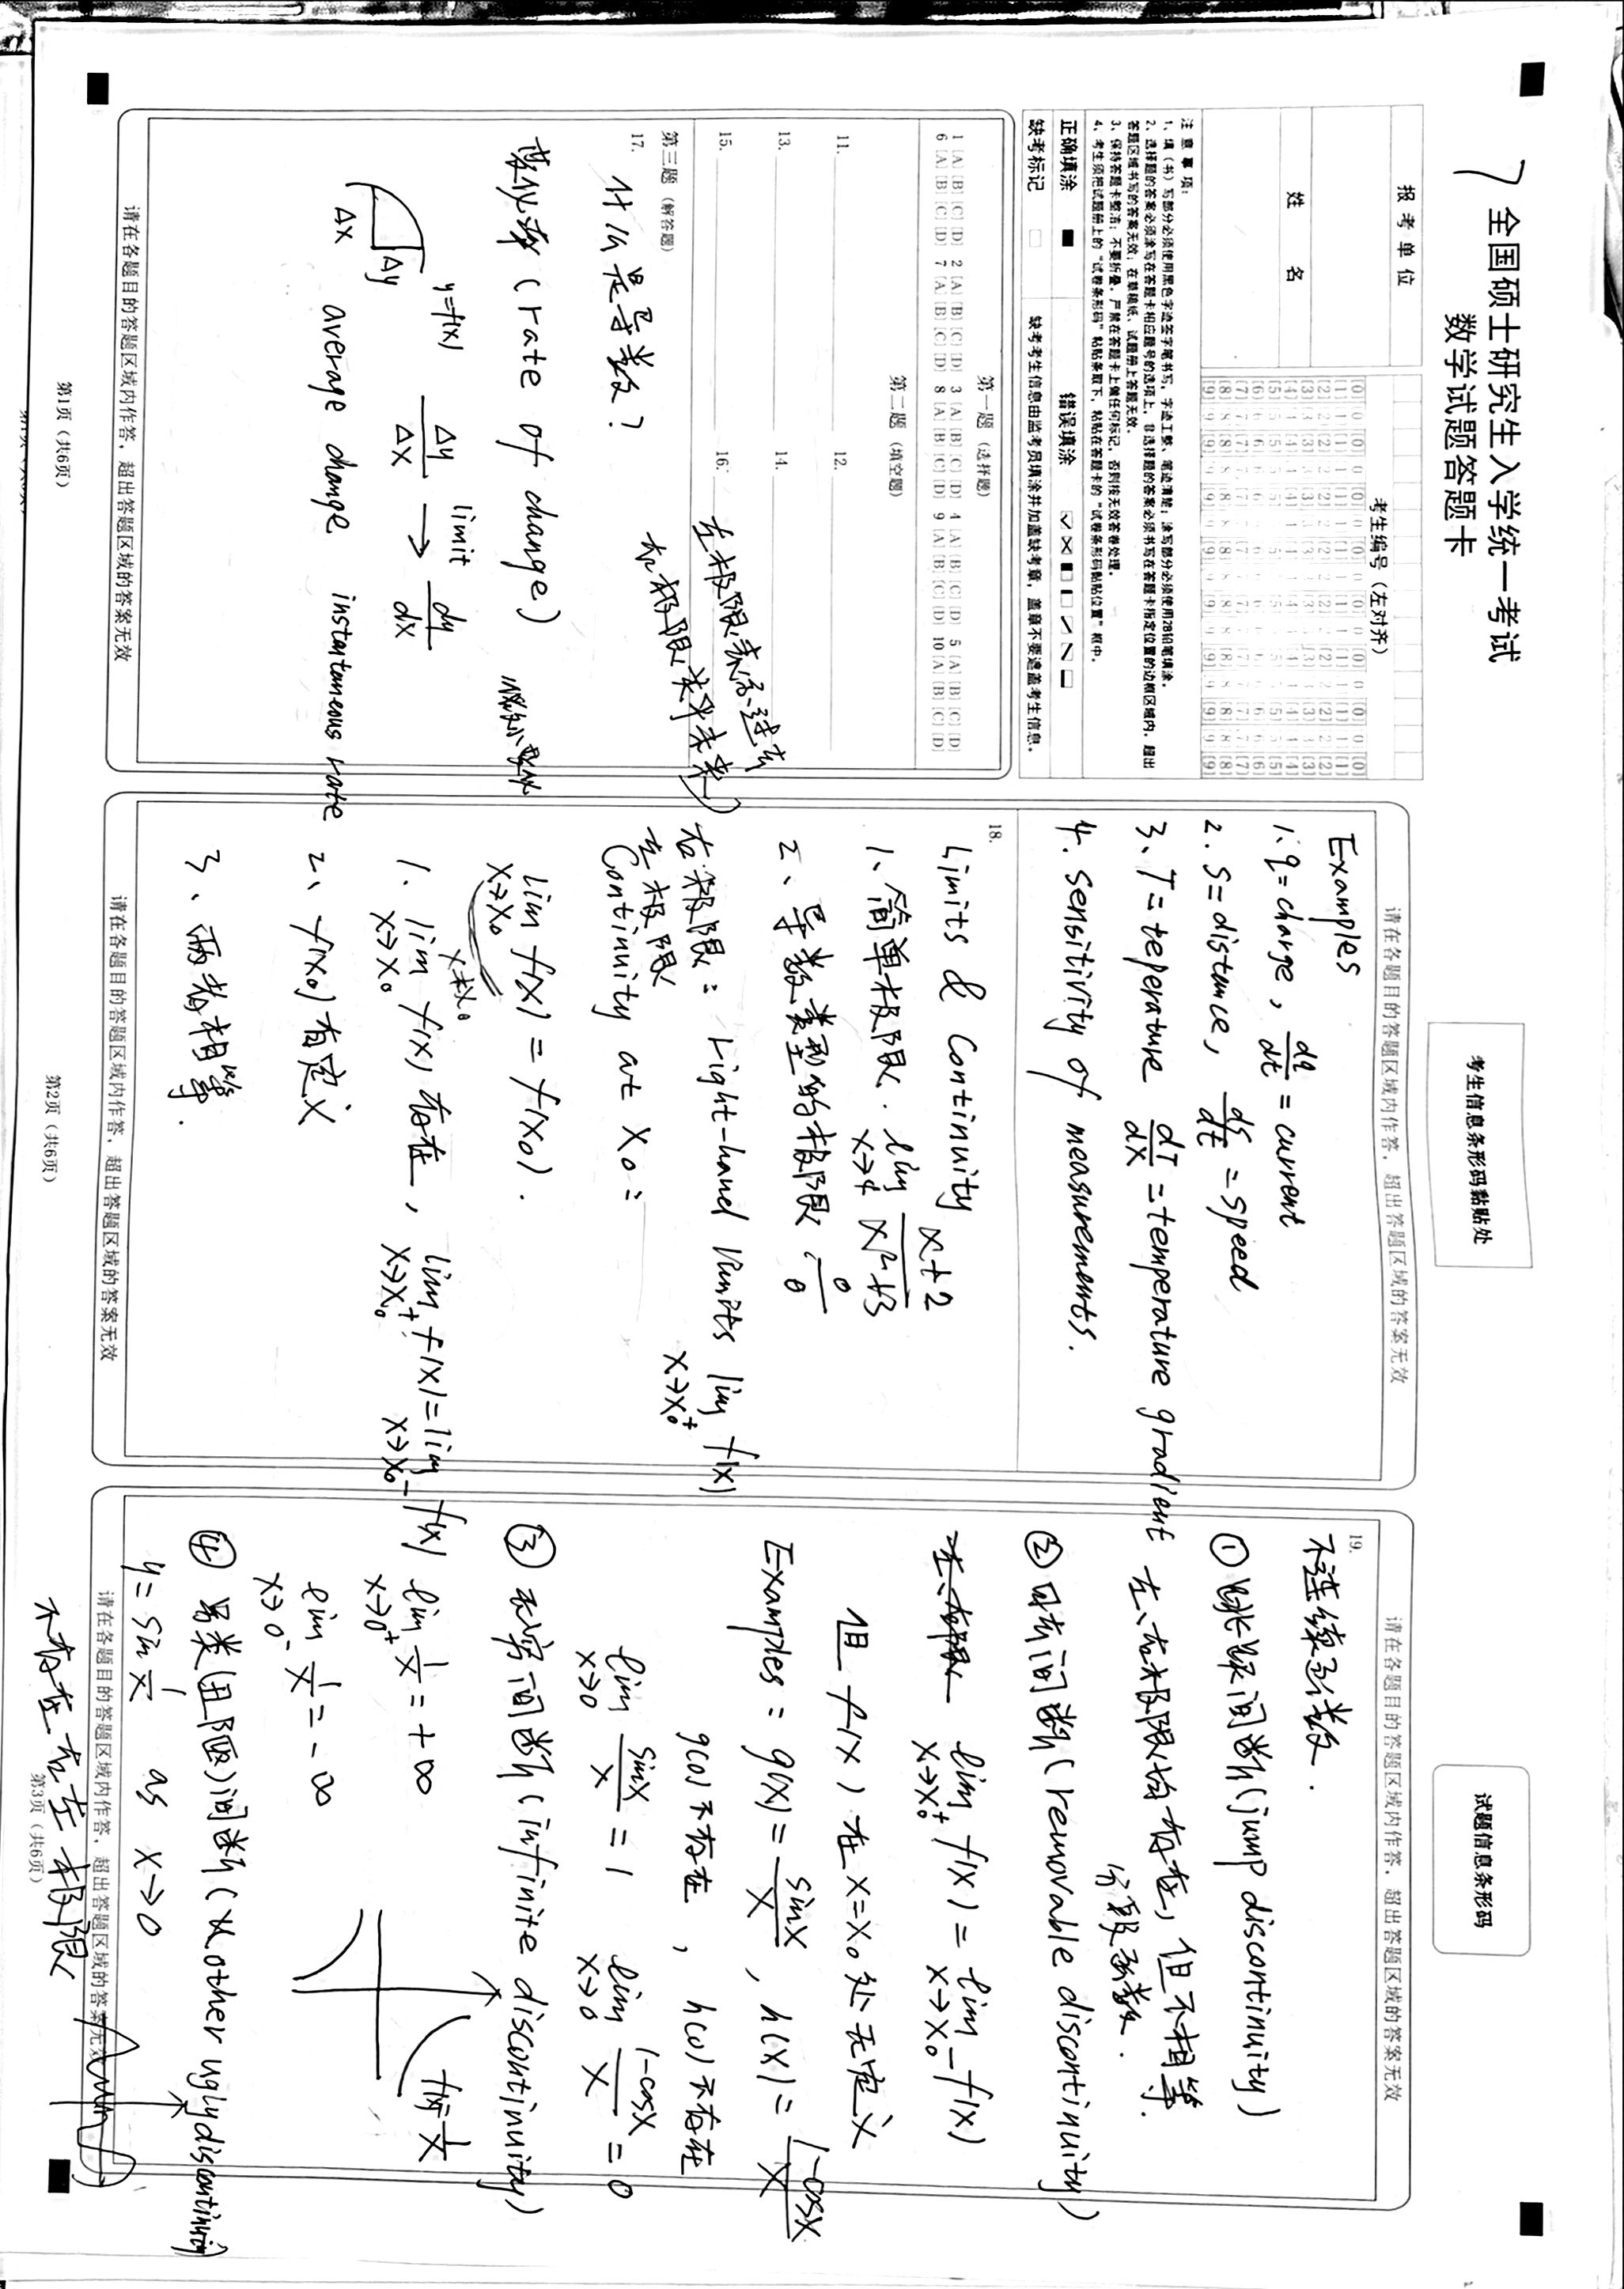 全国硕士研究生入学统一考试
数学试题答题卡
报考单位
姓 名
考生编号（左对齐）
注意事项：
1、填（书）写部分必须使用黑色字迹签字笔书写，字迹工整、笔迹清楚；涂写部分必须使用2B铅笔填涂。
2、选择题的答案必须涂写在答题卡相应题号的选项上，非选择题的答案必须书写在答题卡指定位置的边框区域内，超出
答题区域书写的答案无效；在草稿纸、试题册上答题无效。
3、保持答题卡整洁；不要折叠，严禁在答题卡上做任何标记，否则按无效答卷处理。
4、考生须把试题册上的“试卷条形码”粘贴条取下，粘贴在答题卡的“试卷条形码粘贴位置”框中。
正确填涂 错误填涂
缺考标记 缺考考生信息由监考员填涂并加盖缺考章，盖章不要遮盖考生信息。
第一题（选择题）
1 [A] [B] [C] [D] 2 [A] [B] [C] [D] 3 [A] [B] [C] [D] 4 [A] [B] [C] [D] 5 [A] [B] [C] [D]
6 [A] [B] [C] [D] 7 [A] [B] [C] [D] 8 [A] [B] [C] [D] 9 [A] [B] [C] [D] 10 [A] [B] [C] [D]
第二题（填空题）
11. 12.
13. 14.
15. 16.
左极限表示过去
右极限表示未来
第三题（解答题）
17.
什么是导数？
变化率 (rate of change)
y=f(x)
Δy
Δx
Δy/Δx limit → dy/dx
average change instantaneous rate
请在各题目的答题区域内作答，超出答题区域的答案无效
第1页（共6页）
考生信息条形码黏贴处
请在各题目的答题区域内作答，超出答题区域的答案无效
Examples
1. q=charge, dq/dt = current
2. S=distance, ds/dt = speed
3、T=teperature dT/dx = temperature gradient
4. Sensitivity of measurements.
18.
Limits & Continuity
1、简单极限. lim x→4 x+2/x²+3
2、导数类型的极限. 0/0
右极限: right-hand limits lim x→x₀⁺ f(x)
左极限
Continuity at x₀:
lim x→x₀ f(x) = f(x₀).
x≠x₀
1. lim x→x₀ f(x) 存在, lim x→x₀⁺ f(x) = lim x→x₀⁻ f(x)
2、f(x₀)有定义
3、两者相等.
请在各题目的答题区域内作答，超出答题区域的答案无效
第2页（共6页）
试题信息条形码
请在各题目的答题区域内作答，超出答题区域的答案无效
19.
不连续函数.
① 跳跃间断(jump discontinuity)
左、右极限均存在，但不相等.
分段函数.
② 可去间断(removable discontinuity)
左、右极限 lim x→x₀⁺ f(x) = lim x→x₀⁻ f(x)
但 f(x) 在 x=x₀ 处无定义
Examples: g(x)= sinx/x, h(x)= 1-cosx/x
g(0)不存在, h(0)不存在
lim x→0 sinx/x = 1 lim x→0 1-cosx/x = 0
③ 无穷间断(infinite discontinuity)
lim x→0⁺ 1/x = +∞
f(x)=1/x
lim x→0⁻ 1/x = -∞
④ 另类(丑陋)间断(other ugly discontinuity)
y = sin 1/x as x→0
请在各题目的答题区域内作答，超出答题区域的答案无效
不存在左右极限
第3页（共6页）